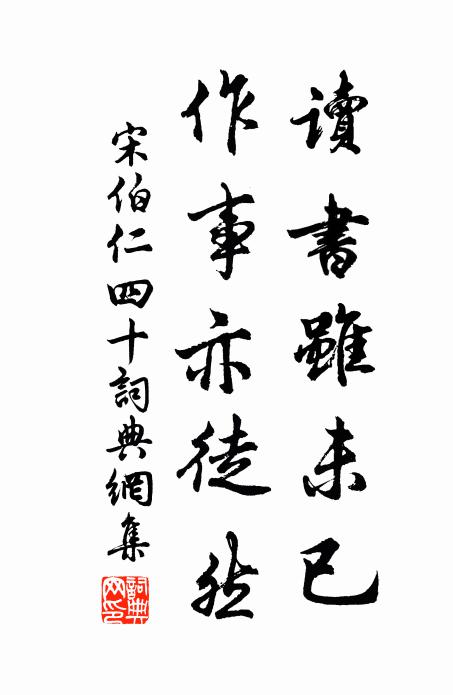 讀書雖未已
作事亦徒然
宋伯仁四十詞典網集
詞典網印